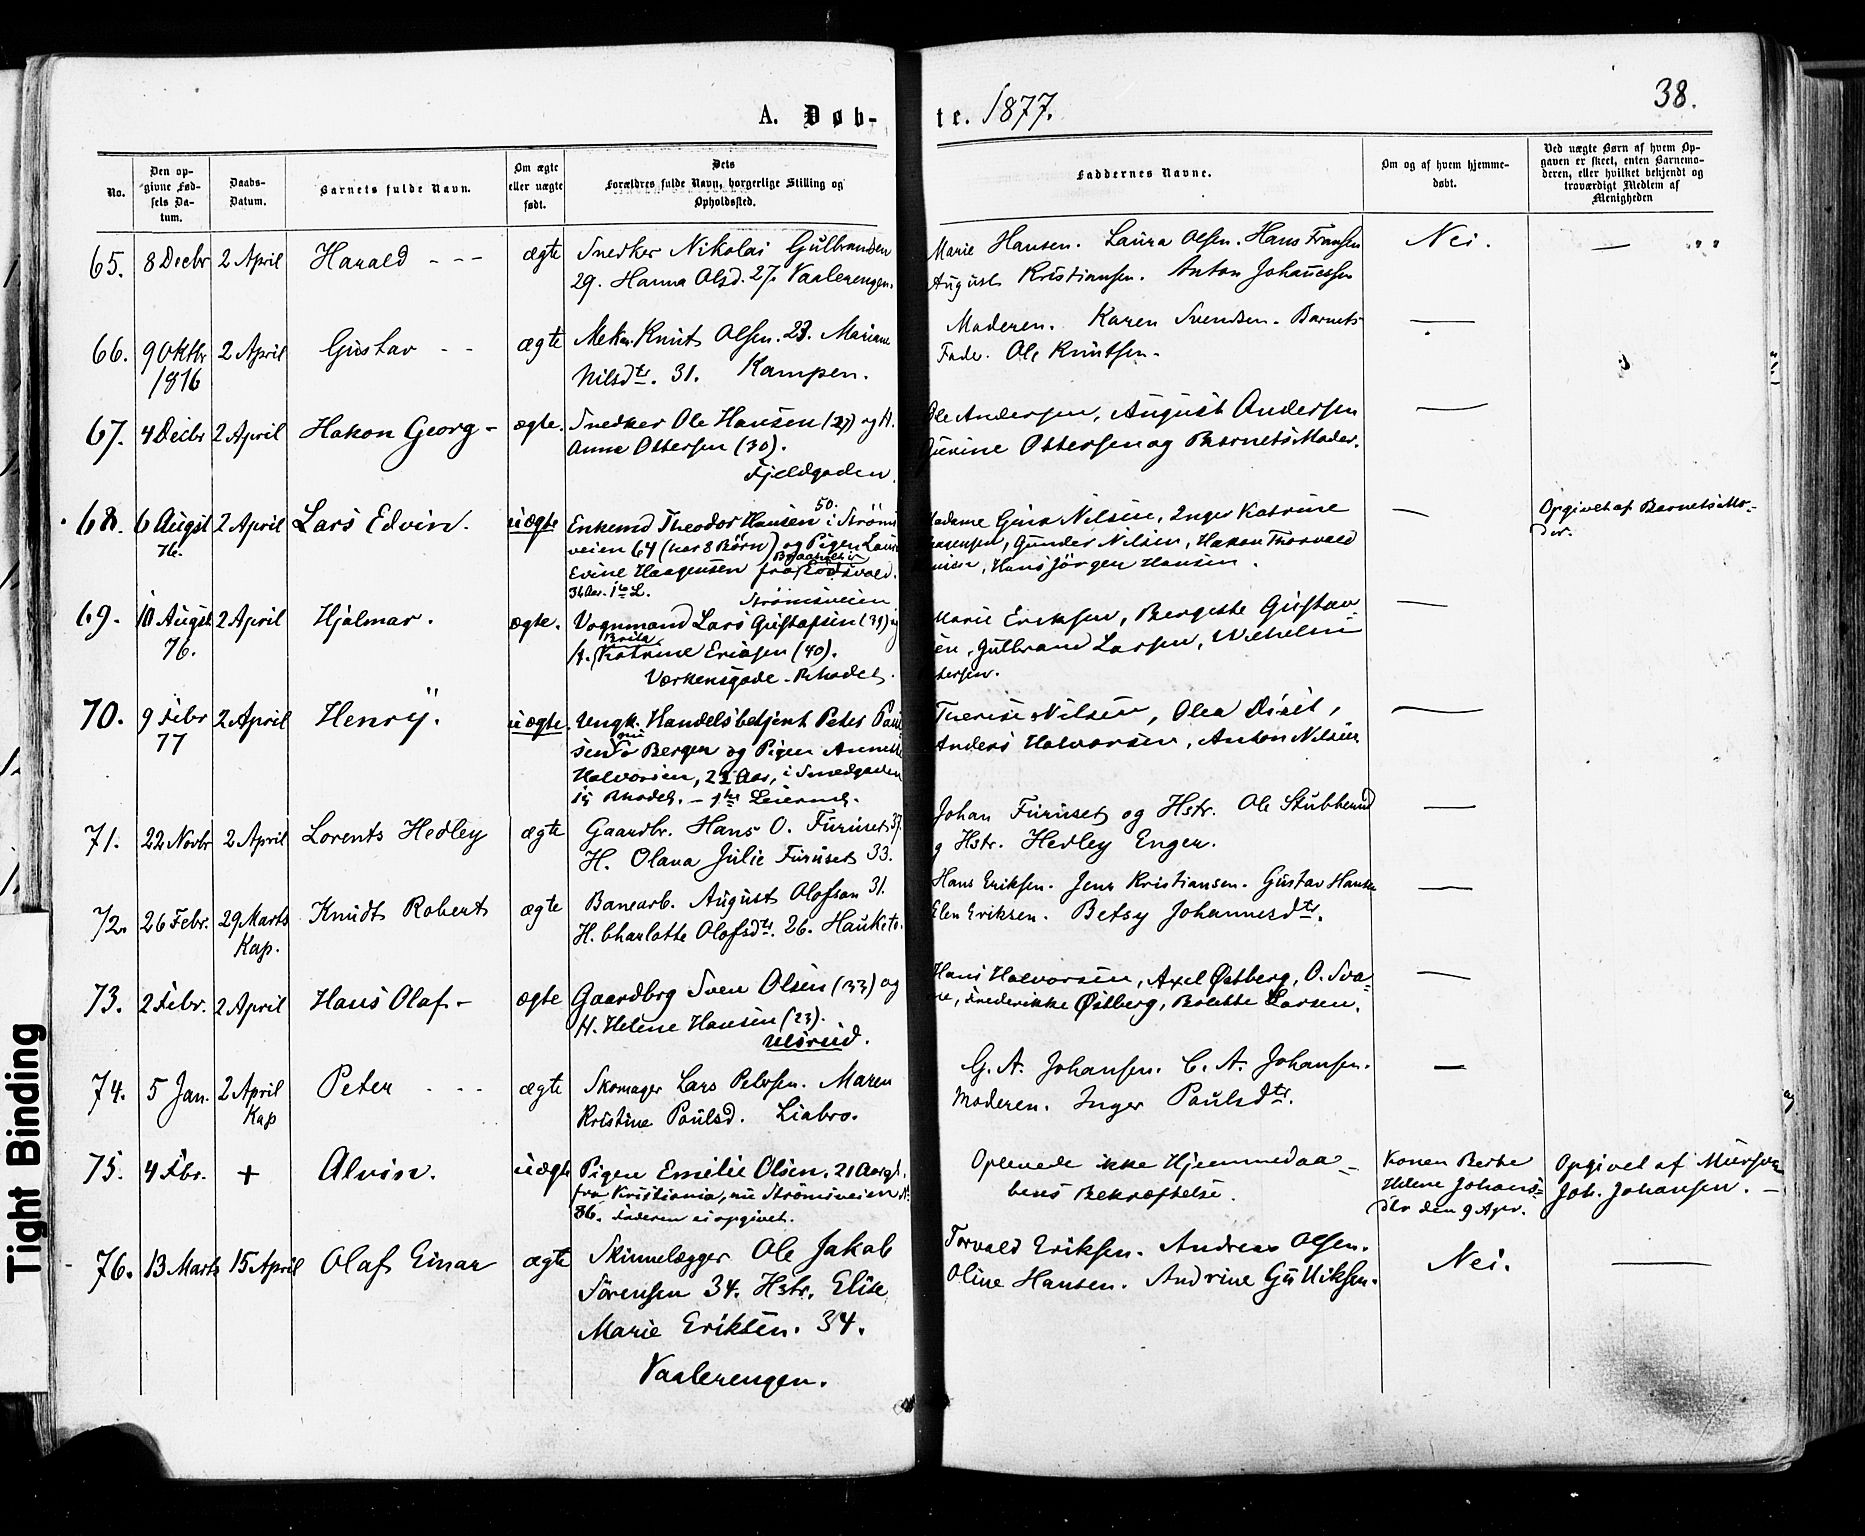 38.
A. Døb-
te. 1877.
No.
Den op-
givne Fød-
sels Da-
tum.
Daabs-
Datum.
Barnets fulde Navn.
Om ægte
eller uægte
født.
Dets
Forældres fulde Navn, borgerlige Stilling og
Opholdssted.
Faddernes Navne.
Om og af hvem hjemme-
døbt.
Ved uægte Børn af hvem Op-
gaven er skeet, enten Barnemo-
deren, eller hvilket bekjendt og
troværdigt Medlem af
Menigheden
65. 8 Decbr 2 April Harald - - - ægte
Snedker Nikolai Gulbrandsen
29. Hanna Olsd. 27. Vaalerengen.
Marie Hansen. Laura Olsen. Hans Fransen
August Kristiansen. Anton Johannessen
Nei. —
66. 9 Oktbr 2 April Gustav - - ægte
1876
Mek. Knut Olsen. 23. Mariane
Nilsdtr. 31. Kampen.
Moderen. Karen Svendsen. Barnets
Fader. Ole Knutsen.
—
67. 4 Decbr 2 April Hakon Georg - ægte.
Snedker Ole Hansen (27) og H.
Anna Ottersen (30).
Fjeldgaden.
Ole Andersen, August Andersen
Ottersen og Barnets Moder.
—
68. 6 Augst 2 April Lars Edvin. uægte
76.
50.
Enkemd Theodor Hansen i Ströms
veien 64 (har 8 Börn) og Pigen
Evine Haagensen fra Eidsvold.
36 Aar. 1ste L.
Strömsveien
Madame Gina Nilsen, Inger Katrine
Gunder Nilsen, Hakon Thorvald
Hans Jörgen Hansen.
—
Opgivet af Barnets Mo-
der.
69. 10 Augst 2 April Hjalmar. ægte.
76.
Vognmand Lars Gustafsen (39) og
Brita
H. Katrine Ericsen (40).
Værkensgade - Rhodel.
Marie Eriksen, Bergette Gustav
sen, Gulbrand Larsen, Wilhelm
Petersen.
—
70. 9 Febr 2 April Henry. uægte.
77
Ungk. Handelsbetjent Peter Paul
sen nu i Bergen og Pigen Annette
Halvorsen, 22 Aar, i Smedgaden
15 Rhodel. - 1ste Leiermd.
Therese Nilsen, Olea Disét,
Anders Halvorsen, Anton Nilsen
—
71. 22 Novbr 2 April Lorents Hedley ægte
Gaardbr. Hans O. Furuset 37.
H. Olava Julie Furuset 33.
Johan Furuset og Hstr. Ole Stubberud
og Hstr. Hedley Enger.
—
72. 26 Febr. 29 Marts Knudt Robert ægte
Kap.
Banearb. August Olofson 31.
H. Charlotte Olofsdtr. 26. Hauketo.
Hans Eriksen. Jens Kristiansen. Gustav Hansen
Elen Eriksen. Betsy Johannesdtr.
—
73. 2 Febr. 2 April Hans Olaf - ægte
Gaardbrg Sven Olsen (33) og
H. Helene Hansen (23).
Ulsrud.
Hans Halvorsen, Axel Østberg, O. Sva-
Frederikke Østberg, Bolette Larsen.
—
74. 5 Jan. 2 April Peter - - - ægte
Kap
Skomager Lars Petersen. Maren
Kristine Paulsd. Liabro.
G. A. Johansen. C. A. Johansen.
Moderen. Inger Paulsdtr.
—
75. 4 Fbr. + Alvin. uægte
Pigen Emilie Olsen. 21 Aar gl.
fra Kristiania, nu Strömsveien N.
86. Faderen ei opgivet.
Oplevede ikke Hjemmedaa-
bens Bekræftelse.
Konen Berthe
Helene Johans-
dtr den 9 Apr.
Opgivet af Mursv.
Joh. Johansen. -
76. 13 Marts 15 April Olaf Einar ægte
Skinnelægger Ole Jakob
Sörensen 34. Hstr. Elise
Marie Eriksen. 34.
Vaalerengen.
Torvald Eriksen. Andreas Olsen.
Oline Hansen. Andrine Gulliksen.
Nei. —
Tight Binding